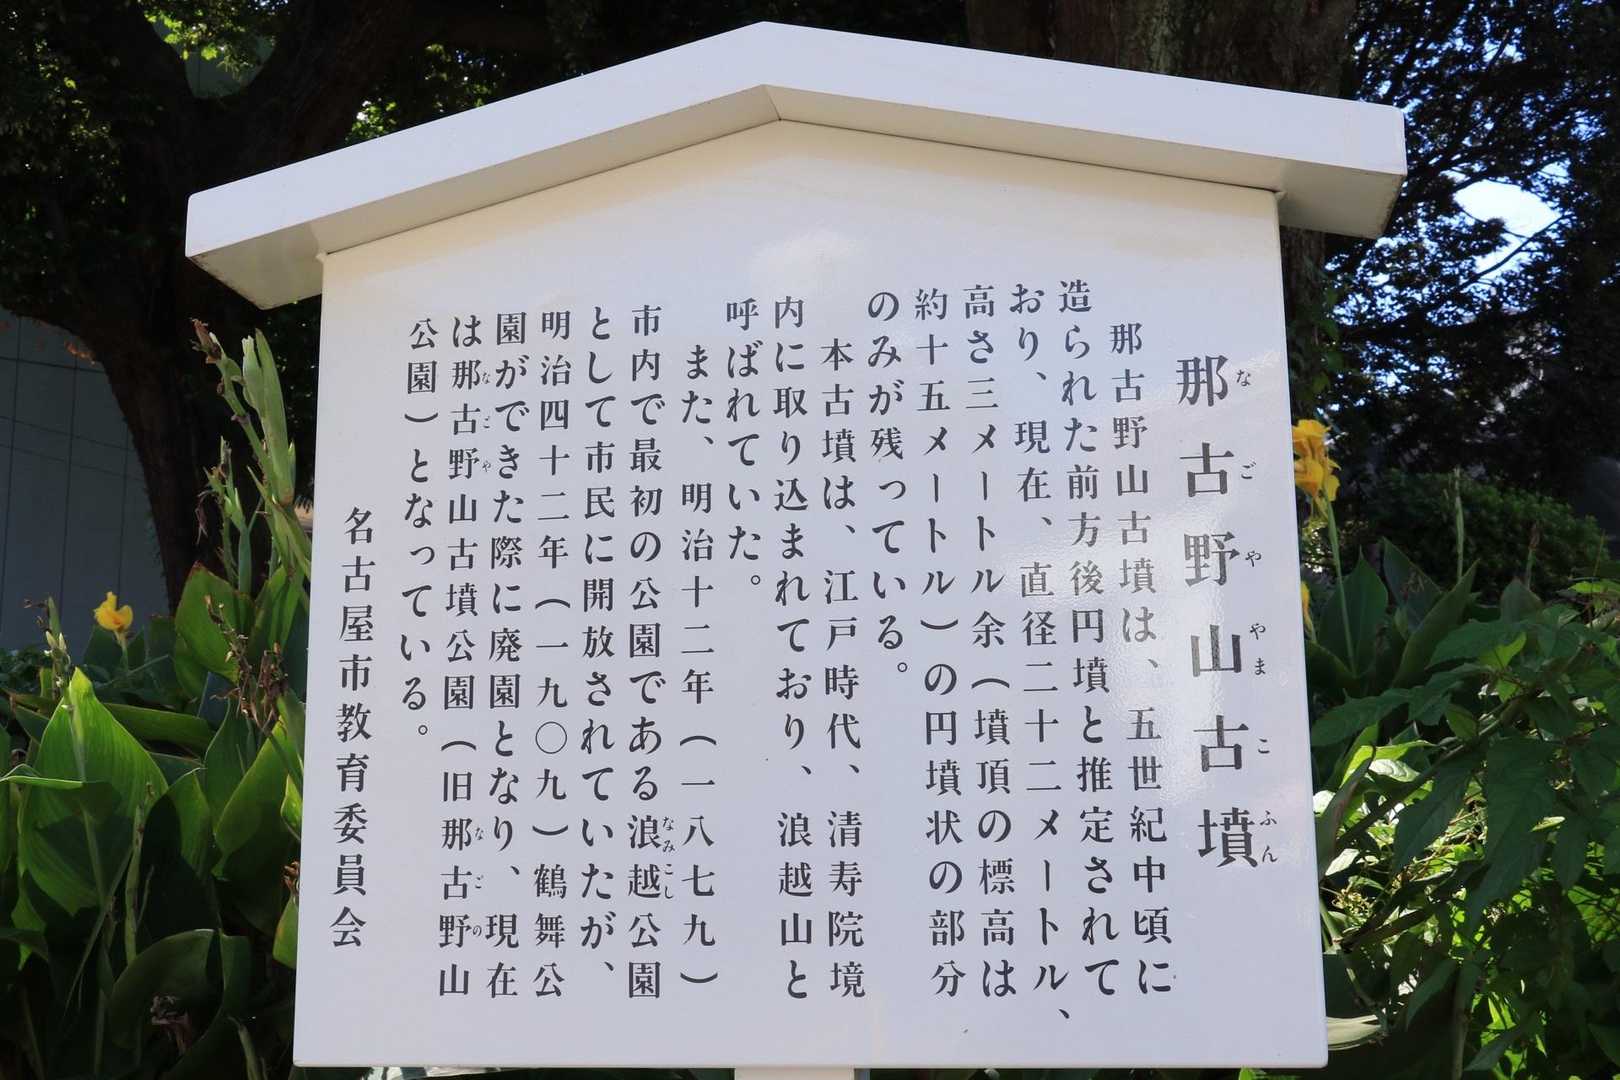 那古野山古墳
なごややまこふん
那古野山古墳は、五世紀中頃に
造られた前方後円墳と推定されて
おり、現在、直径二十二メートル、
高さ三メートル余（墳頂の標高は
約十五メートル）の円墳状の部分
のみが残っている。
本古墳は、江戸時代、清寿院境
内に取り込まれており、浪越山と
呼ばれていた。
また、明治十二年（一八七九）
市内で最初の公園である浪越公園
なみこし
として市民に開放されていたが、
明治四十二年（一九〇九）鶴舞公
園ができた際に廃園となり、現在
は那古野山古墳公園（旧那古野山
なごや
なごの
公園）となっている。
名古屋市教育委員会